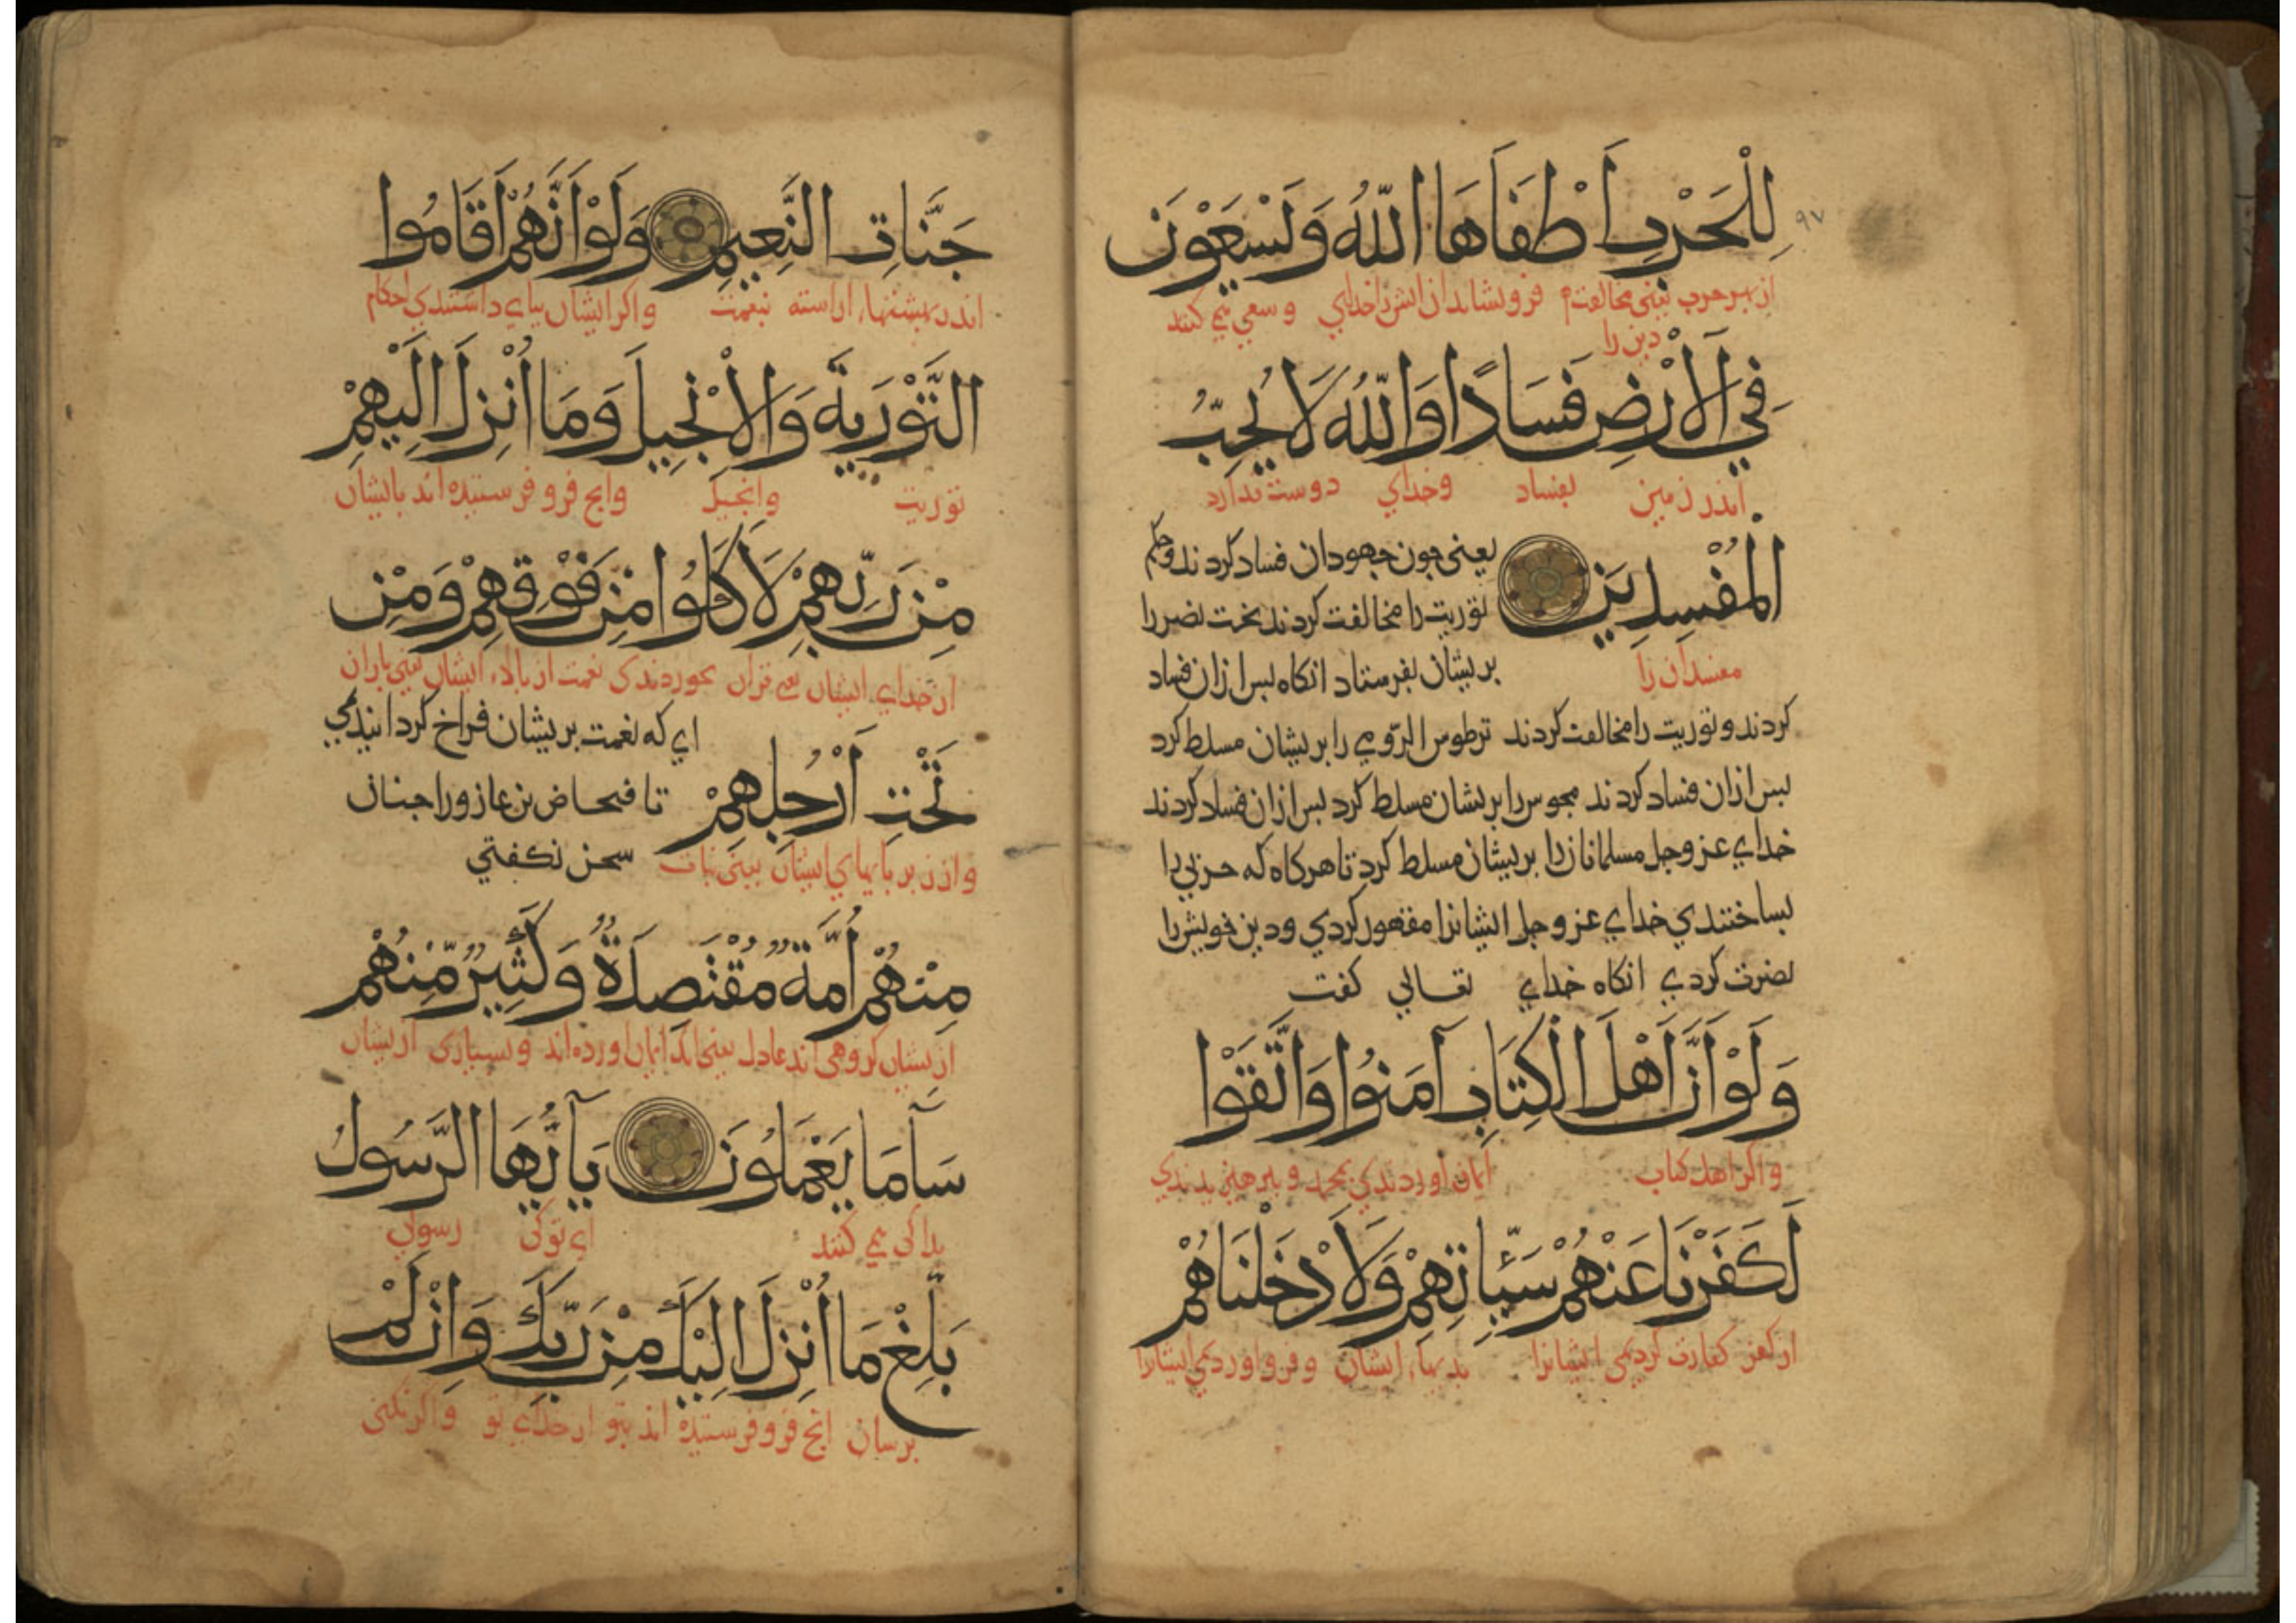 ٩٧
لِلْحَرْبِ اَطْفَاَهَا اللّٰهُ وَيَسْعَوْنَ
از بهر حرب یعنی مخالفت فرو نشاند ان اتش را خدای و سعی می کنند
دین را
فِي الْاَرْضِ فَسَادًا وَاللّٰهُ لَا يُحِبُّ
اندر زمین بفساد وخدای دوست ندارد
الْمُفْسِدِينَ
یعنی جون جهودان فساد کردند وحکم
توریت را مخالفت کردند بخت نصر را
مفسدان را
بریشان بفرستاد انکاه بس ازان فساد
کردند و توریت را مخالفت کردند ترطوس الرّومي را بریشان مسلط کرد
بس ازان فساد کردند مجوس را بریشان مسلط کرد بس ازان فساد کردند
خدای عز وجل مسلمانان را بریشان مسلط کرد تا هرکاه که حربی را
بساختندی خدای عز وجل ایشانرا مقهور کردی و دین خویش را
نصرت کردی انکاه خدای تعالی کفت
وَلَوْ اَنَّ اَهْلَ الْكِتَابِ آمَنُوا وَاتَّقَوْا
واکر اهل کتاب ایمان اوردندی بمحمد و برهیزیدندی
لَكَفَّرْنَا عَنْهُمْ سَيِّئَاتِهِمْ وَلَاَدْخَلْنَاهُمْ
کفارت کردیمی ایشانرا بدیهاء ایشان و فرو اوردیمی ایشانرا
جَنَّاتِ النَّعِيمِ وَلَوْ اَنَّهُمْ اَقَامُوا
اندر بهشتهاء اراسته بنعمت واکر ایشان ببای داشتندی احکام
التَّوْرَيةَ وَالْاِنْجِيلَ وَمَا اُنْزِلَ اِلَيْهِمْ
توریت وانجیل وانج فرو فرستیده اند بایشان
مِنْ رَبِّهِمْ لَاَكَلُوا مِنْ فَوْقِهِمْ وَمِنْ
از خدای ایشان قران بخوردندی نعمت از بالاء ایشان یعنی باران
ای که نعمت بریشان فراخ کردانیدمی
تَحْتِ اَرْجُلِهِمْ
تا فنحاص بن عازورا جنان
وز زیر بایهای ایشان یعنی نبات
سخن نکفتی
مِنْهُمْ اُمَّةٌ مُقْتَصِدَةٌ وَكَثِيرٌ مِّنْهُمْ
ازیشان کروهی اند عادل یعنی انک ایمان اورده اند و بسیاری ازیشان
سَآءَ مَا يَعْمَلُونَ يَآ اَيُّهَا الرَّسُولُ
بدا کی می کنند ای تو کی رسولی
بَلِّغْ مَا اُنْزِلَ اِلَيْكَ مِنْ رَبِّكَ وَاِنْ لَمْ
برسان انج فرو فرستیده اند بتو از خدای تو واکر نکنی